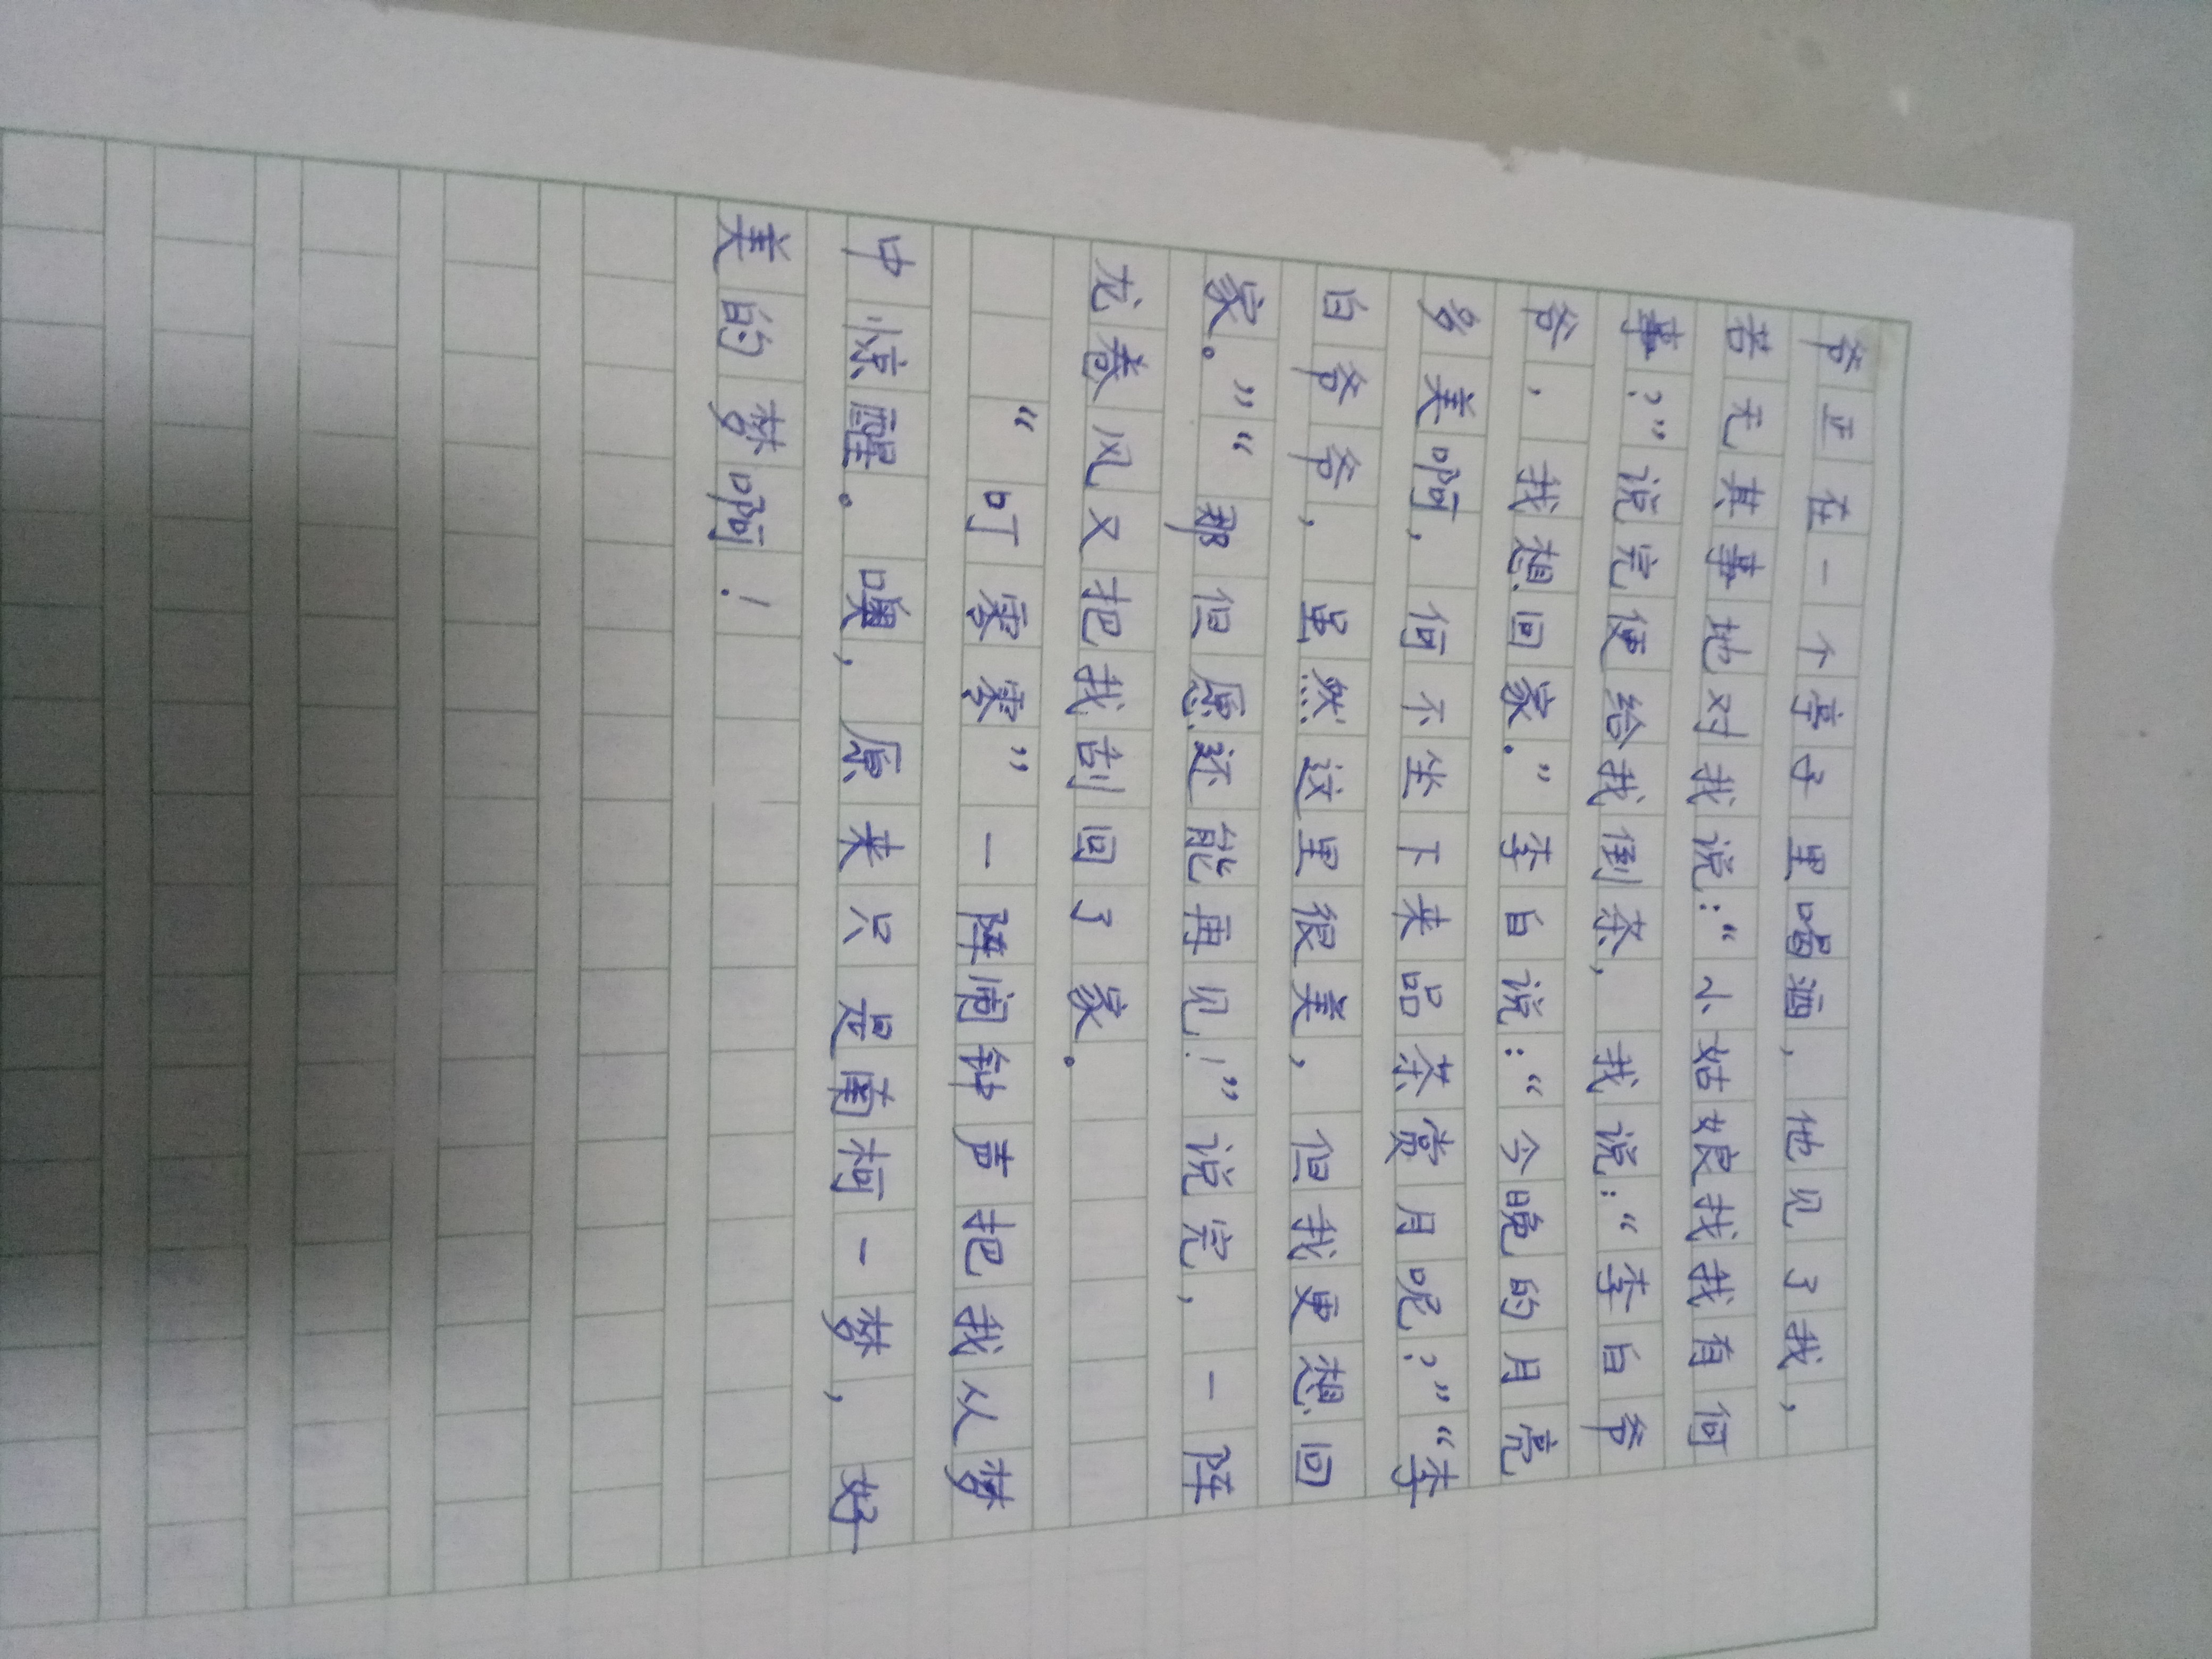 爷正在一个亭子里喝酒，他见了我，
若无其事地对我说：“小姑娘找我有何
事？”说完便给我倒茶，我说：“李白爷
爷，我想回家。”李白说：“今晚的月亮
多美啊，何不坐下来品茶赏月呢？”“李
白爷爷，虽然这里很美，但我更想回
家。”“那但愿还能再见！”说完，一阵
龙卷风又把我刮回了家。
“叮寒寒”一阵闹钟声把我从梦
中惊醒。噢，原来只是南柯一梦，好
美的梦啊！